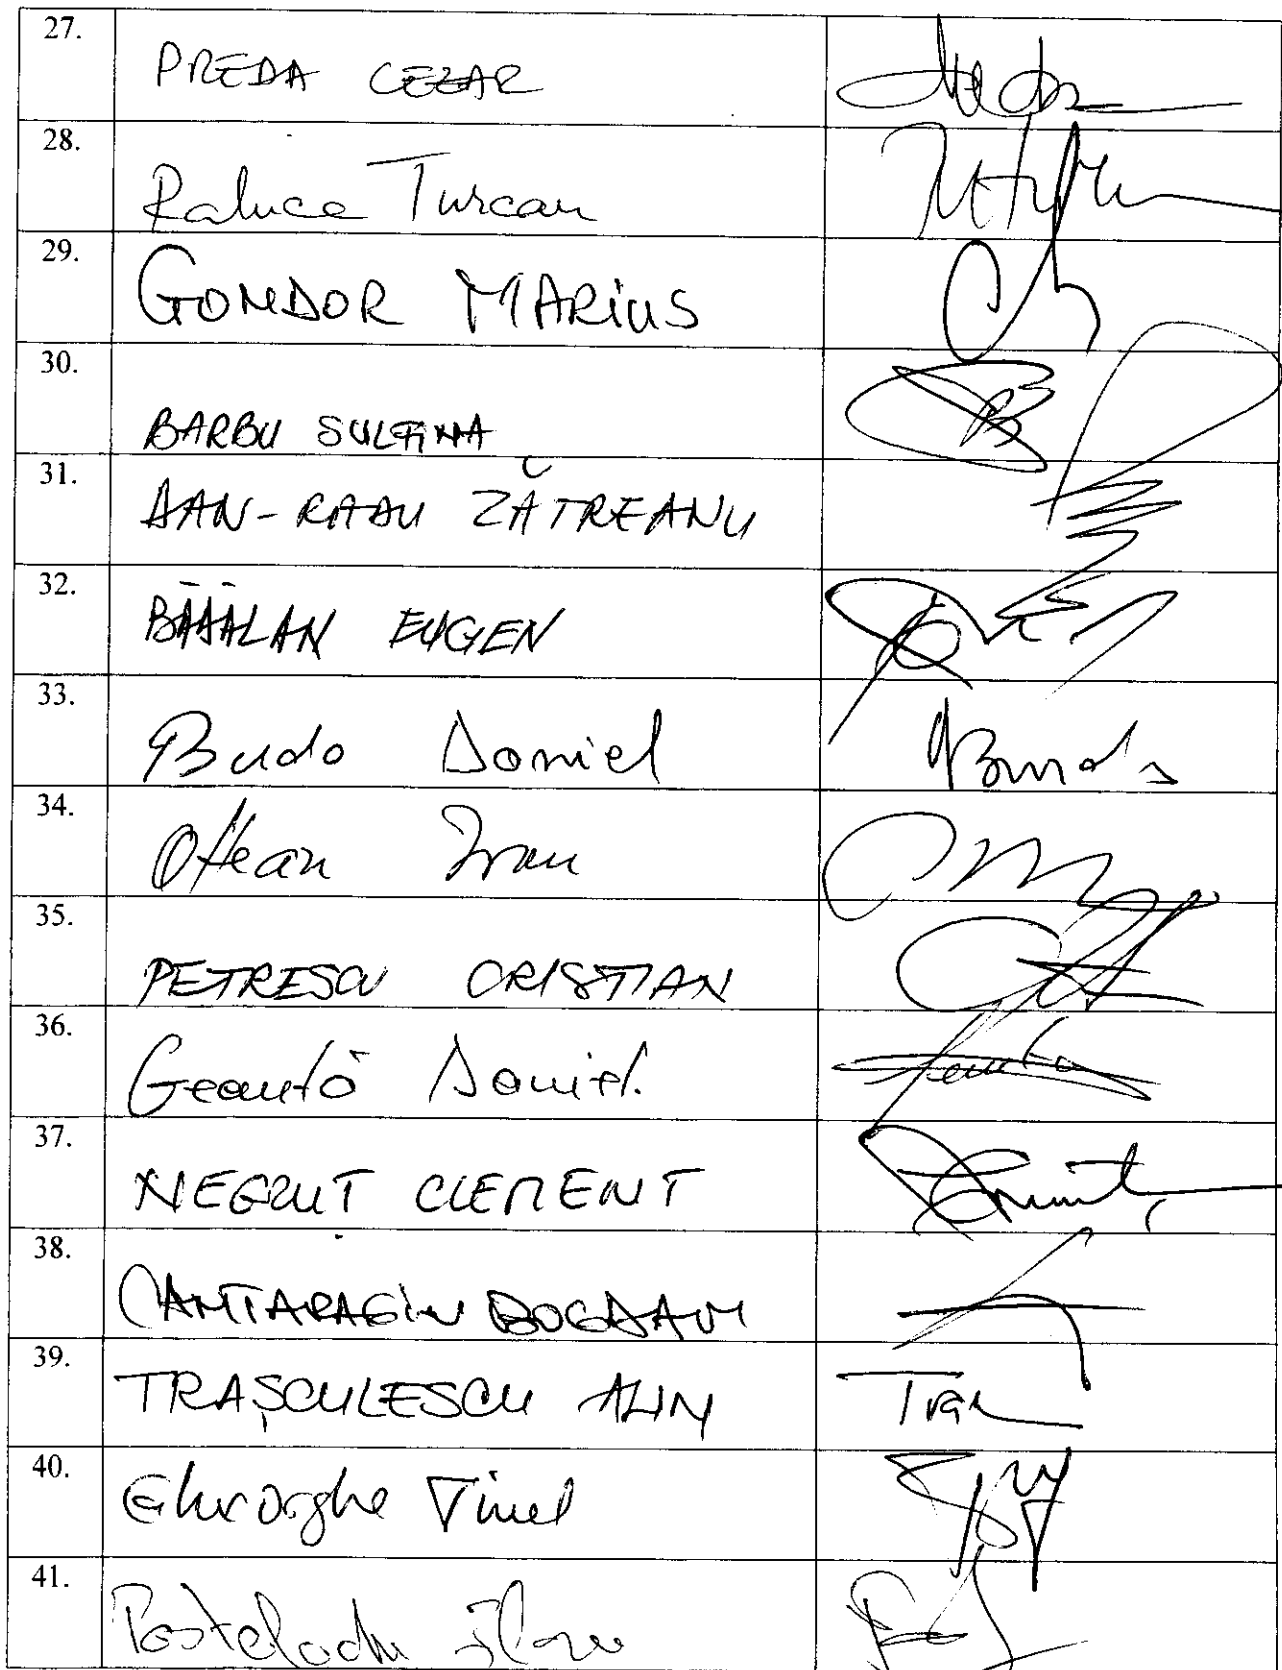 27. PREDA CEZAR
28. Raluca Turcan
29. GONDOR MARIUS
30. BARBU SULFINA
31. DAN-RADU ZĂTREANU
32. BĂDĂLAN EUGEN
33. Buda Daniel
34. Oltean Ioan
35. PETRESCU CRISTIAN
36. Geantă Daniel.
37. NEGRUT CLEMENT
38. CANTARAGIU BOGDAN
39. TRAȘCULESCU ALIN
40. Gheorghe Tinel
41.